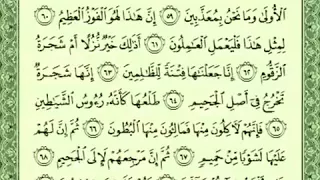 ٱلْأُولَىٰ وَمَا نَحْنُ بِمُعَذَّبِينَ ٥٩ إِنَّ هَٰذَا لَهُوَ ٱلْفَوْزُ ٱلْعَظِيمُ ٦٠
لِمِثْلِ هَٰذَا فَلْيَعْمَلِ ٱلْعَٰمِلُونَ ٦١ أَذَٰلِكَ خَيْرٌ نُّزُلًا أَمْ شَجَرَةُ
ٱلزَّقُّومِ ٦٢ إِنَّا جَعَلْنَٰهَا فِتْنَةً لِّلظَّٰلِمِينَ ٦٣ إِنَّهَا شَجَرَةٌ
تَخْرُجُ فِىٓ أَصْلِ ٱلْجَحِيمِ ٦٤ طَلْعُهَا كَأَنَّهُۥ رُءُوسُ ٱلشَّيَٰطِينِ
٦٥ فَإِنَّهُمْ لَءَاكِلُونَ مِنْهَا فَمَالِـُٔونَ مِنْهَا ٱلْبُطُونَ ٦٦ ثُمَّ إِنَّ لَهُمْ
عَلَيْهَا لَشَوْبًا مِّنْ حَمِيمٍ ٦٧ ثُمَّ إِنَّ مَرْجِعَهُمْ لَإِلَى ٱلْجَحِيمِ ٦٨